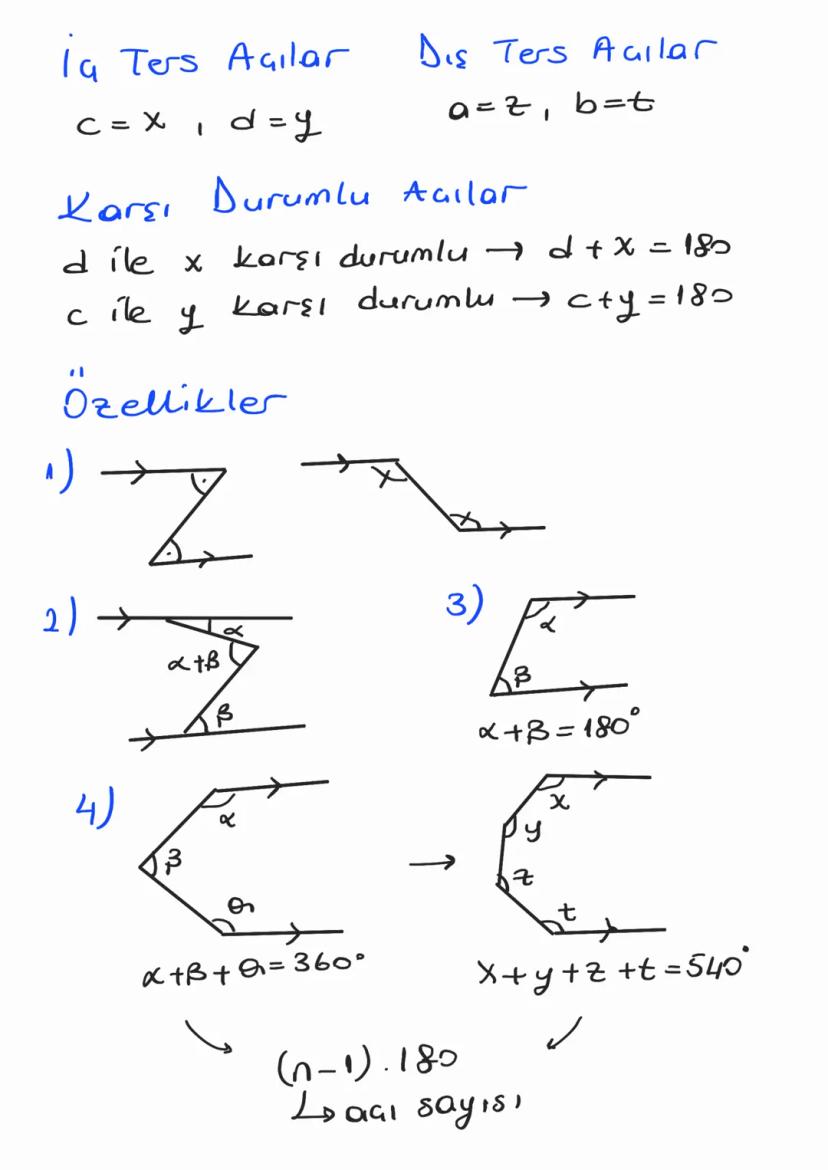 İç Ters Açılar
Dış Ters Açılar
c = x , d = y
a = z , b = t
Karşı Durumlu Açılar
d ile x karşı durumlu → d + x = 180
c ile y karşı durumlu → c + y = 180
Özellikler
1)
x
x
2)
α
α+β
β
3)
α
β
α+β = 180°
4)
α
β
θ
α+β+θ = 360°
→
x
y
z
t
x+y+z+t = 540°
(n-1).180
↳ açı sayısı